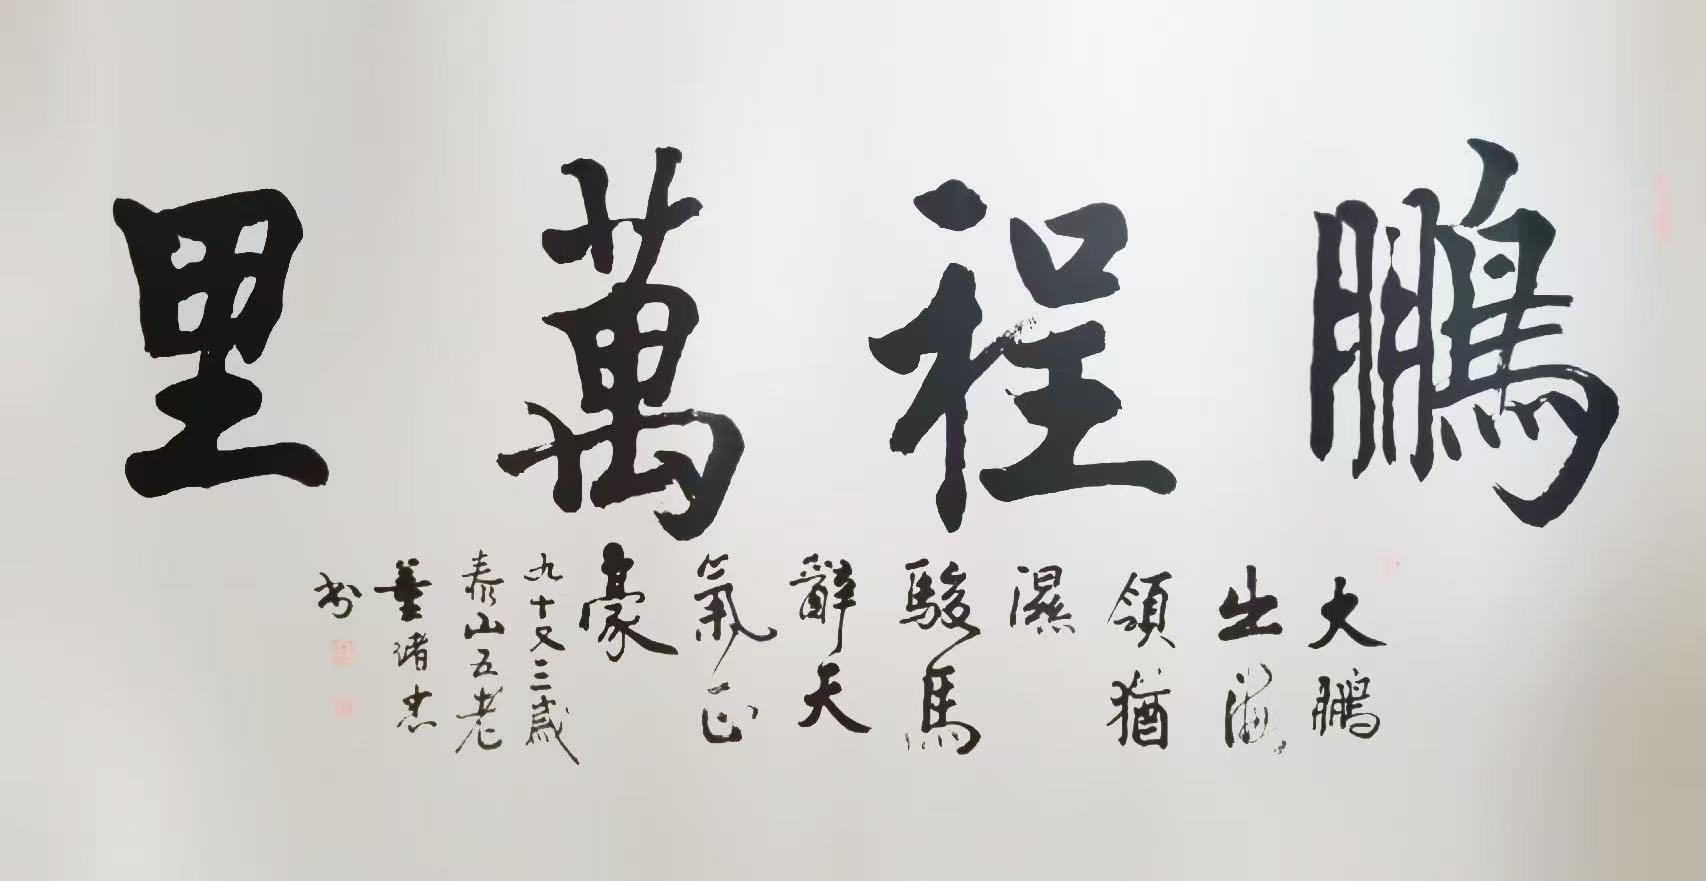 鵬程萬里
大鵬
出海
領猶
濕
駿馬
辭天
氣正
豪
九十又三歲
泰山五老
董忠
书